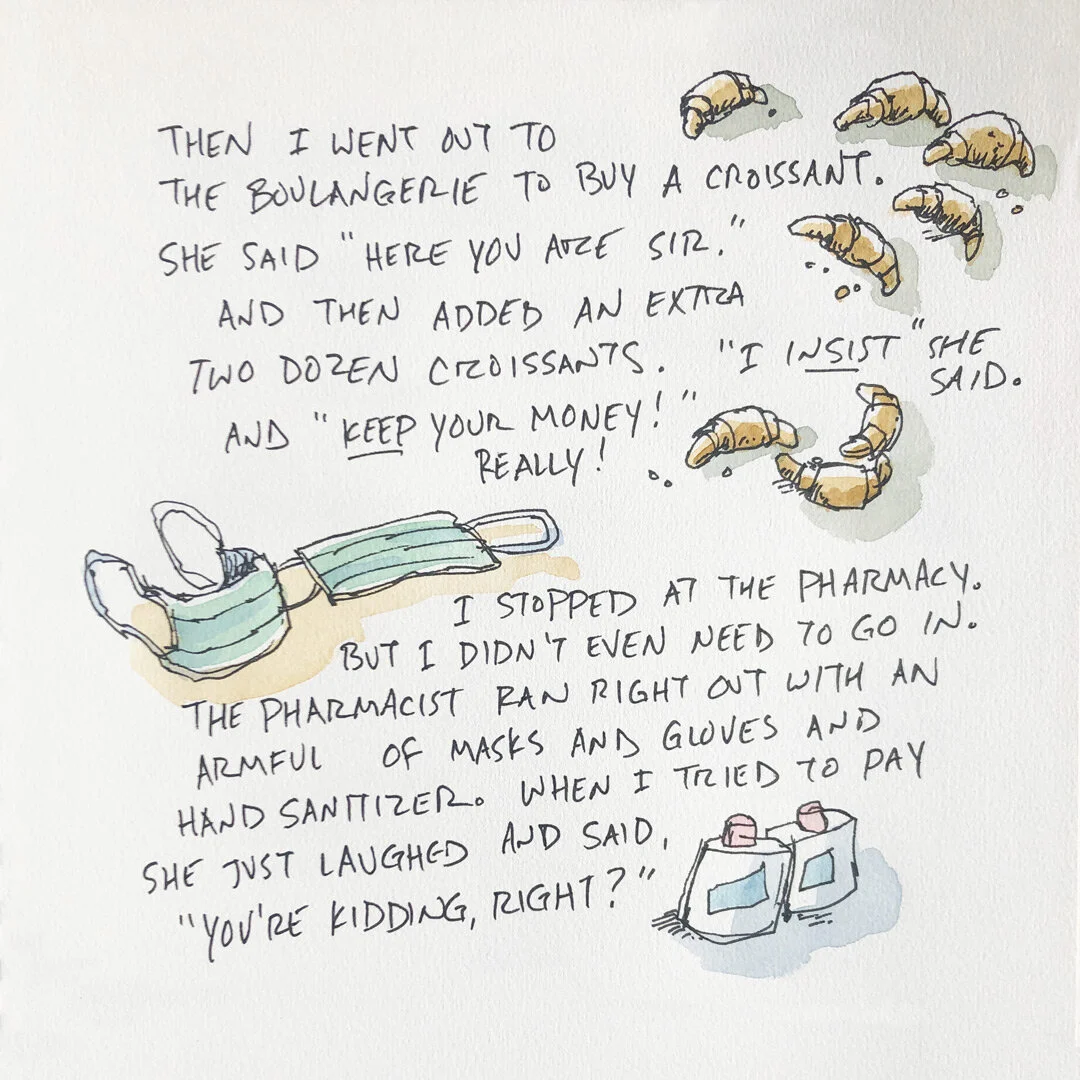 THEN I WENT OUT TO
THE BOULANGERIE TO BUY A CROISSANT.
SHE SAID "HERE YOU ARE SIR."
AND THEN ADDED AN EXTRA
TWO DOZEN CROISSANTS. "I INSIST" SHE
SAID.
AND "KEEP YOUR MONEY!"
REALLY!
I STOPPED AT THE PHARMACY.
BUT I DIDN'T EVEN NEED TO GO IN.
THE PHARMACIST RAN RIGHT OUT WITH AN
ARMFUL OF MASKS AND GLOVES AND
HAND SANITIZER. WHEN I TRIED TO PAY
SHE JUST LAUGHED AND SAID,
"YOU'RE KIDDING, RIGHT?"